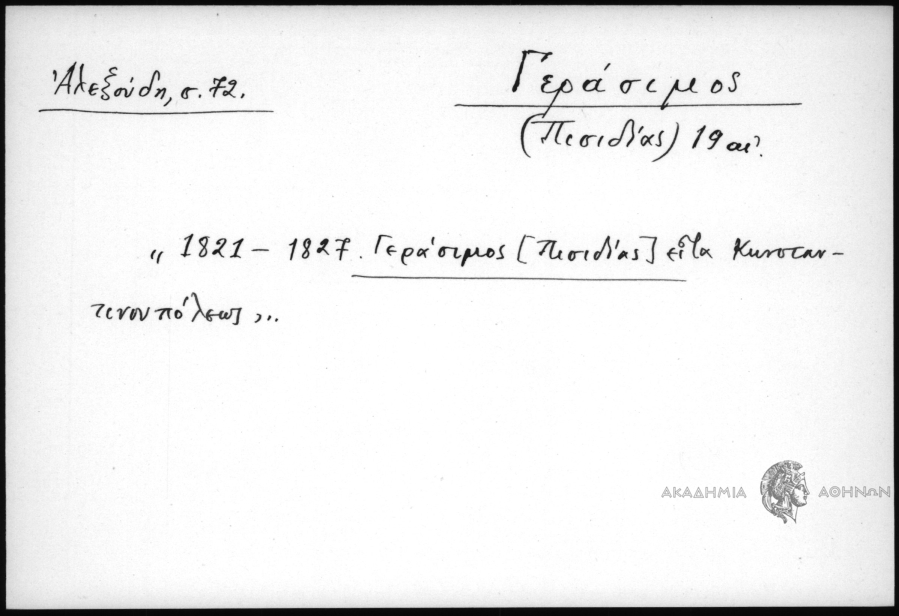 Ἀλεξούδη, σ. 72.
Γεράσιμος
(Πισιδίας) 19 αἰ.
„ 1821 – 1827. Γεράσιμος [Πισιδίας] εἶτα Κωνσταν-
τινουπόλεως,..
ΑΚΑΔΗΜΙΑ ΑΘΗΝΩΝ